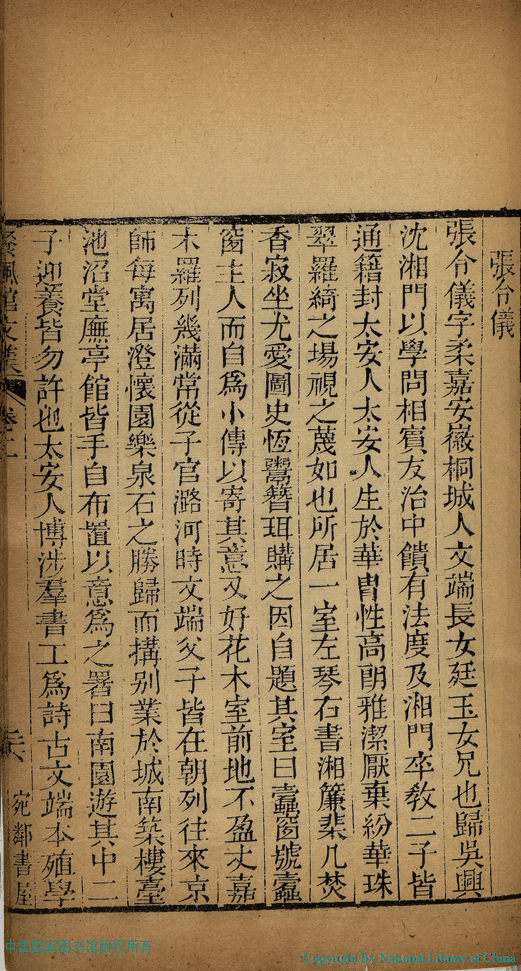 張令儀
張令儀字柔嘉安徽桐城人文端長女廷玉女兄也歸吳興
沈湘門以學問相賓友治中饋有法度及湘門卒教二子皆
通籍封太安人太安人生於華胄性高朗雅潔厭棄紛華珠
翠羅綺之場視之蔑如也所居一室左琴右書湘簾棐几焚
香寂坐尤愛圖史恆鬻簪珥購之因自題其室曰蠹窗號蠹
窗主人而自為小傳以寄其意又好花木室前地不盈丈嘉
木羅列幾滿常從子官潞河時文端父子皆在朝列往來京
師每寓居澄懷園樂泉石之勝歸而搆別業於城南築樓臺
池沼堂廡亭館皆手自布置以意為之署曰南園遊其中二
子迎養皆勿許也太安人博涉羣書工為詩古文端本殖學
佩館文業 卷十一
宛鄰書屋
中国国家图书馆
Copyright by National Library of China